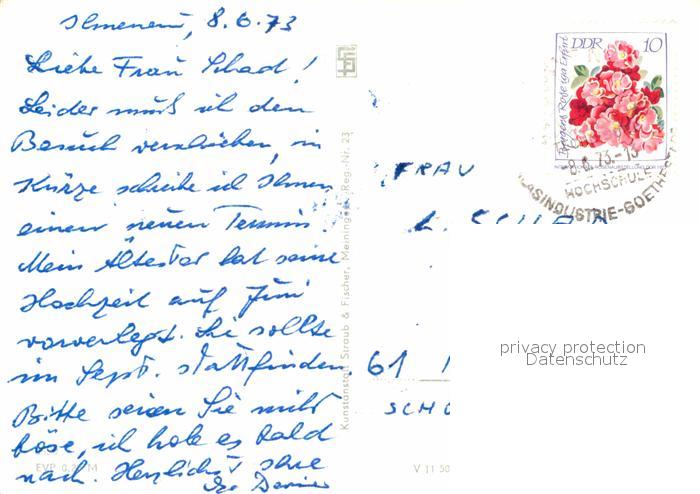 Ilmenau, 8.6.73
Liebe Frau Schad!
Leider muß ich den
Besuch verschieben, in
Kürze schreibe ich Ihnen
einen neuen Termin.
Mein Ältester hat seine
Hochzeit auf Juni
vorverlegt. Sie sollte
im Sept. stattfinden.
Bitte seien Sie nicht
böse, ich hole es bald
nach. Herzlichst Ihre
EVP 0,20 M
Kunstanstalt Straub & Fischer, Meiningen Reg.-Nr. 23
V 11 50
DDR 10
HOCHSCHULE
GLASINDUSTRIE-GOETHE
FRAU
61
privacy protection
Datenschutz